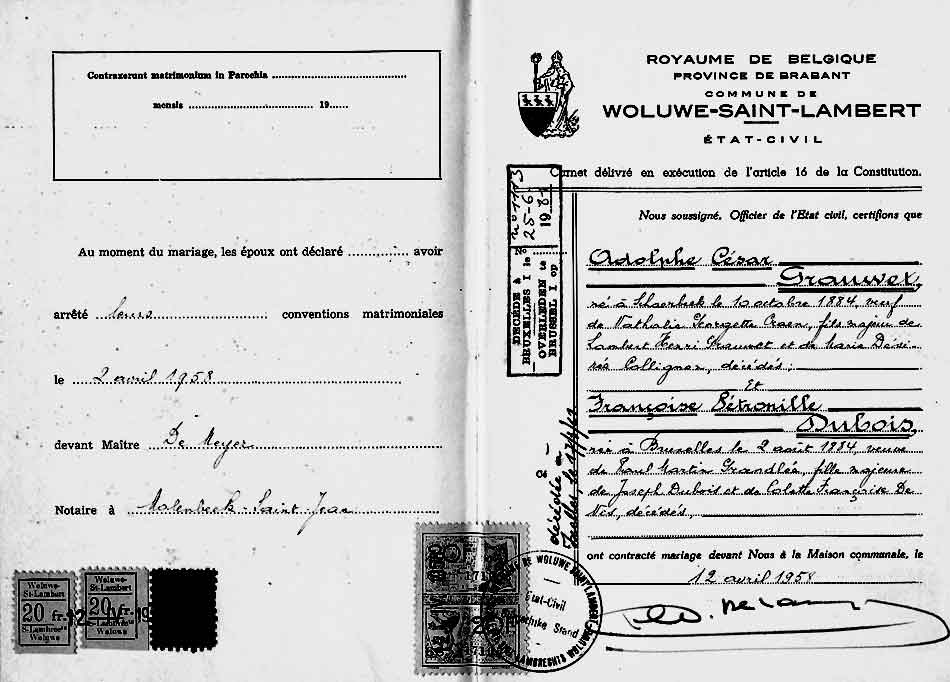 Contraxerunt matrimonium in Parochia
mensis 19
Au moment du mariage, les époux ont déclaré avoir
arrêté leurs conventions matrimoniales
le 2 avril 1958
devant Maître De Meyer
Notaire à Molenbeek-Saint-Jean
Woluwe-
St-Lambert
20 fr.
S.-Lambrechts
Woluwe
Woluwe-
St-Lambert
20 fr.
S.-Lambrechts
Woluwe
ROYAUME DE BELGIQUE
PROVINCE DE BRABANT
COMMUNE DE
WOLUWE-SAINT-LAMBERT
ÉTAT-CIVIL
Carnet délivré en exécution de l'article 16 de la Constitution.
N° 1113
25-6
19
DÉCÉDÉ à
BRUXELLES I le
OVERLEDEN te
BRUSSEL I op
Nous soussigné, Officier de l'Etat civil, certifions que
Adolphe César
Grauwet,
né à Schaerbeek le 10 octobre 1884, veuf
de Nathalie Georgette Craen, fils majeur de
Lambert Henri Grauwet et de Marie Dési-
rée Collignon, décédés;
Et
Françoise Pétronille
Dubois,
née à Bruxelles le 2 août 1884 veuve
de Paul Martin fille majeure
de Joseph Dubois et de Colette Françoise De
décédés,
décédée à
Ixelles, le
ont contracté mariage devant Nous à la Maison communale, le
12 avril 1958
État-Civil